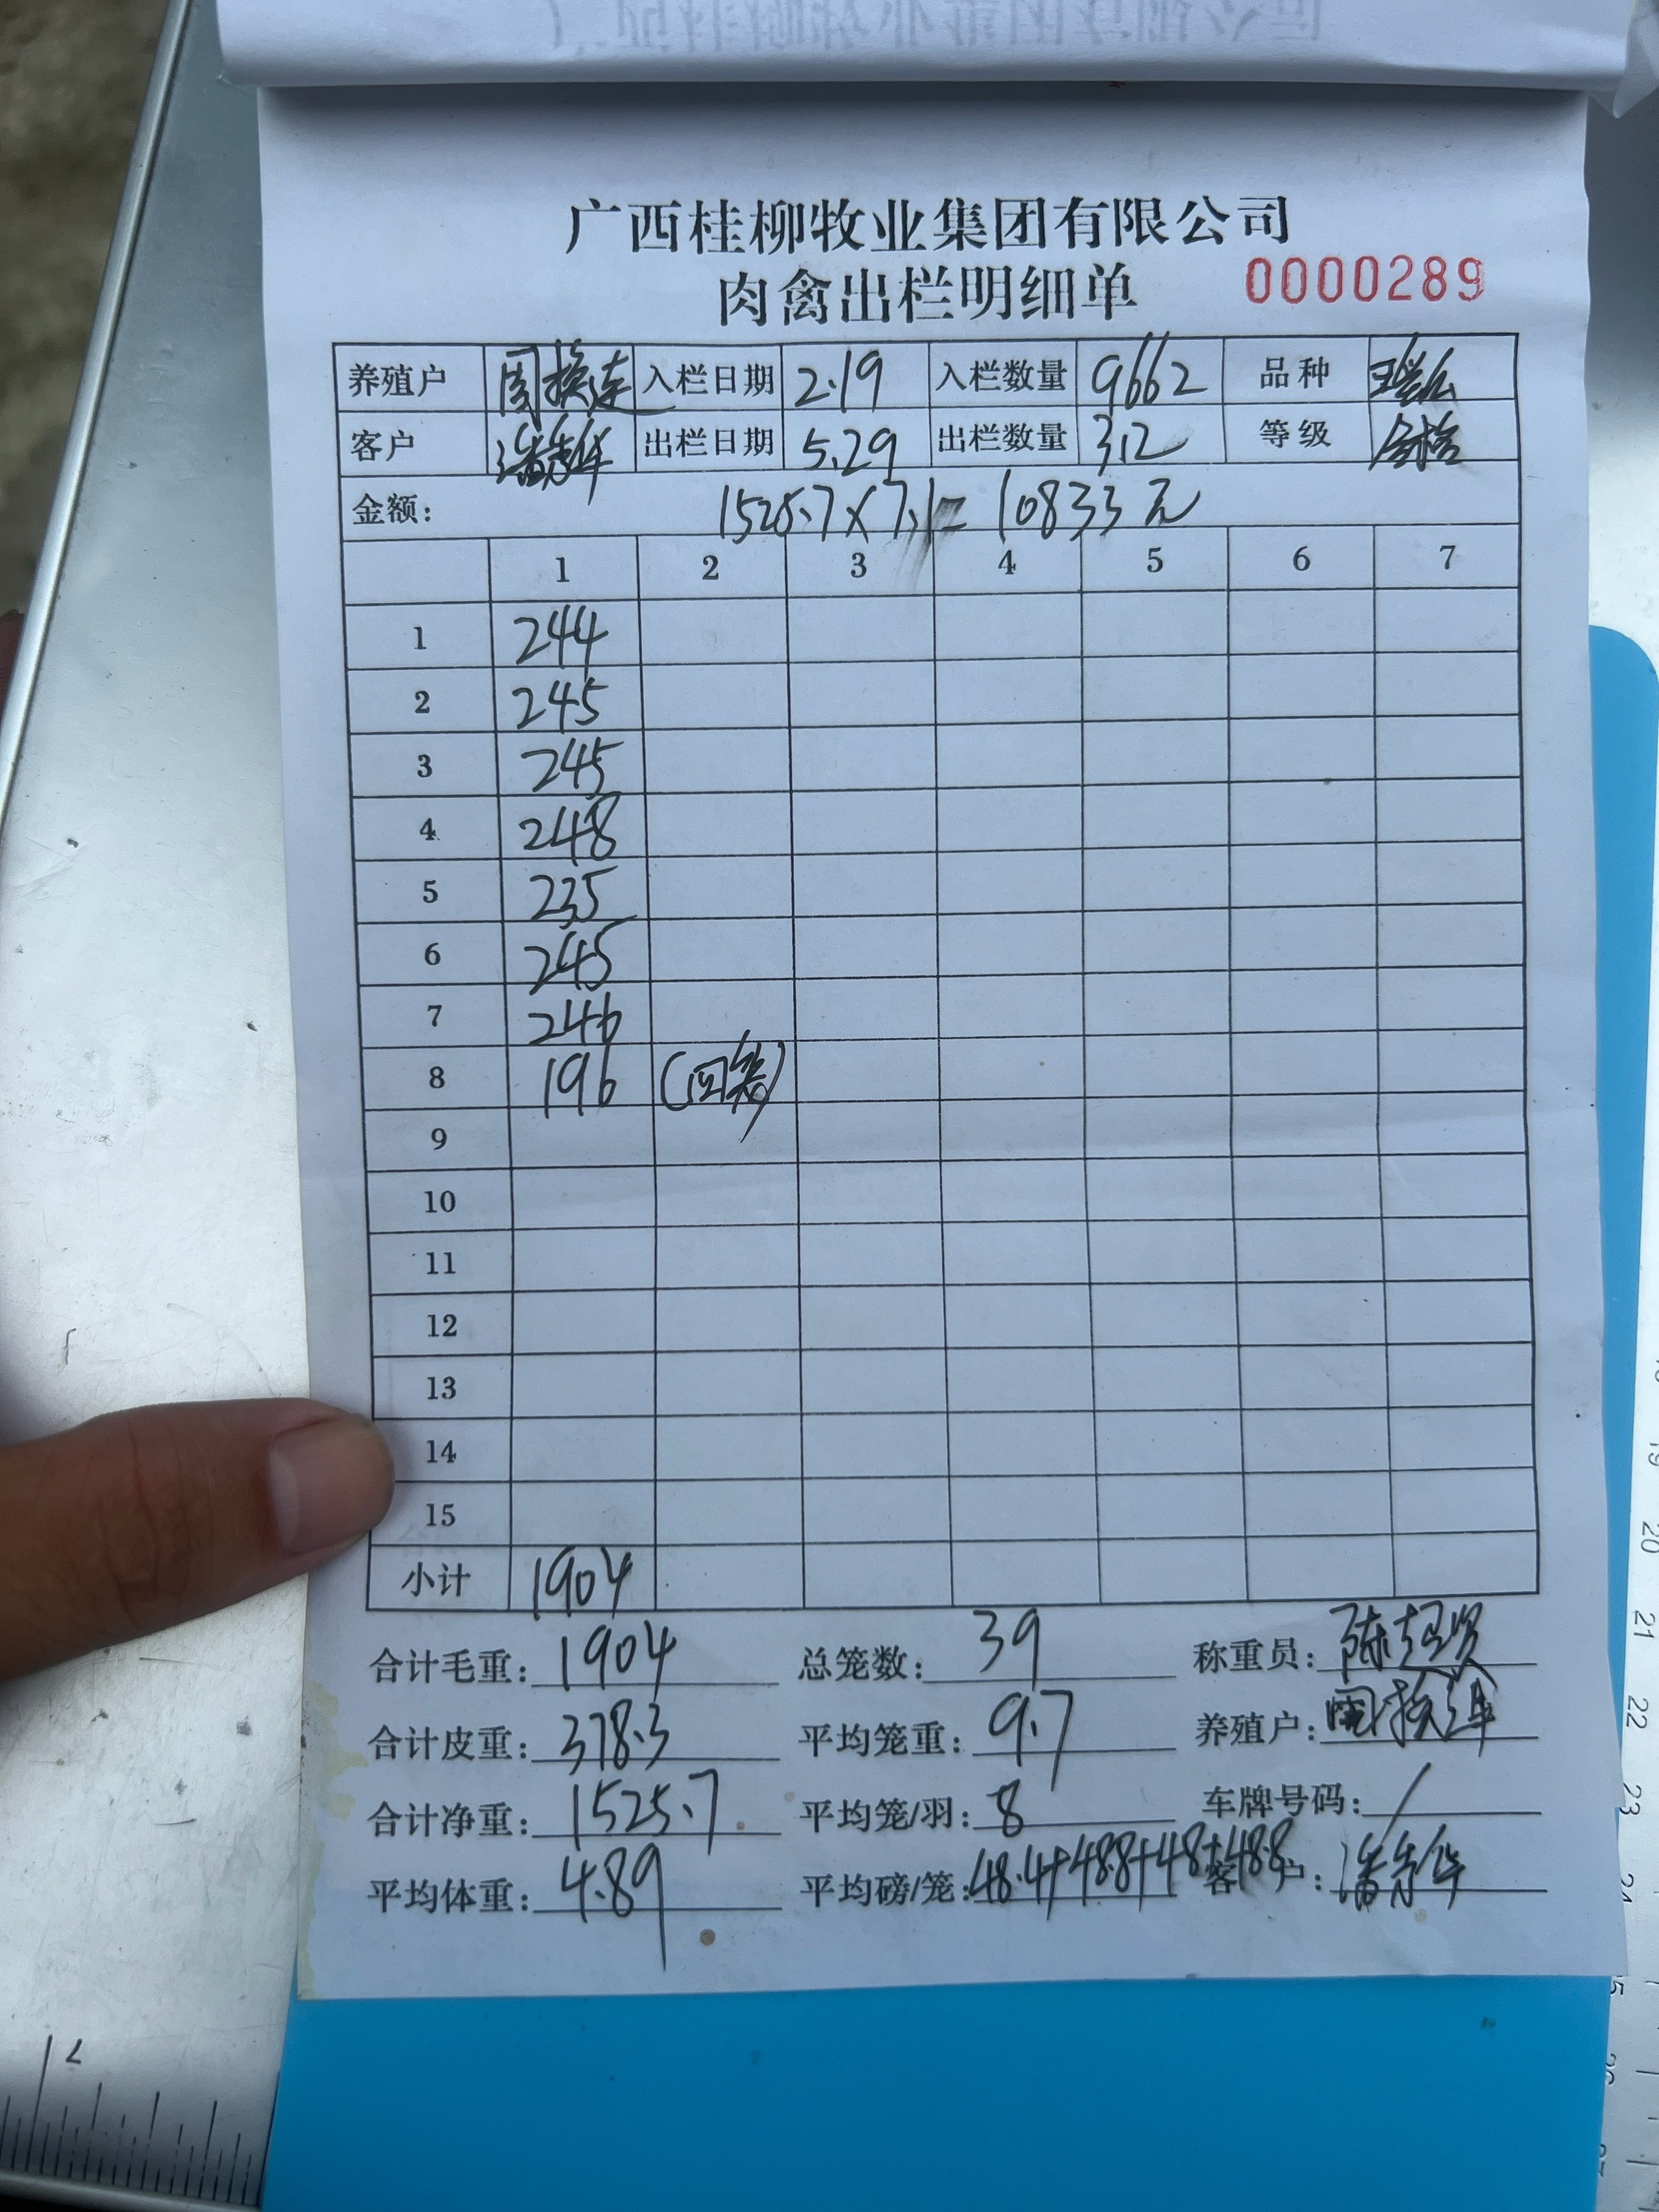 广西桂柳牧业集团有限公司
肉禽出栏明细单 0000289
养殖户 周换连 入栏日期 2.19 入栏数量 9662 品种
客户 出栏日期 5.29 出栏数量 312 等级 合格
金额: 1525.7×7.1= 10833元
1 2 3 4 5 6 7
1 244
2 245
3 245
4 248
5 235
6 245
7 246
8 196 (四笼)
9
10
11
12
13
14
15
小计 1904
合计毛重: 1904 总笼数: 39 称重员: 陈超贤
合计皮重: 378.3 平均笼重: 9.7 养殖户: 周换连
合计净重: 1525.7 平均笼/羽: 8 车牌号码: /
平均体重: 4.89 平均磅/笼: 48.4+48.8+48+48.8 客户:
18
19
20
21
22
23
24